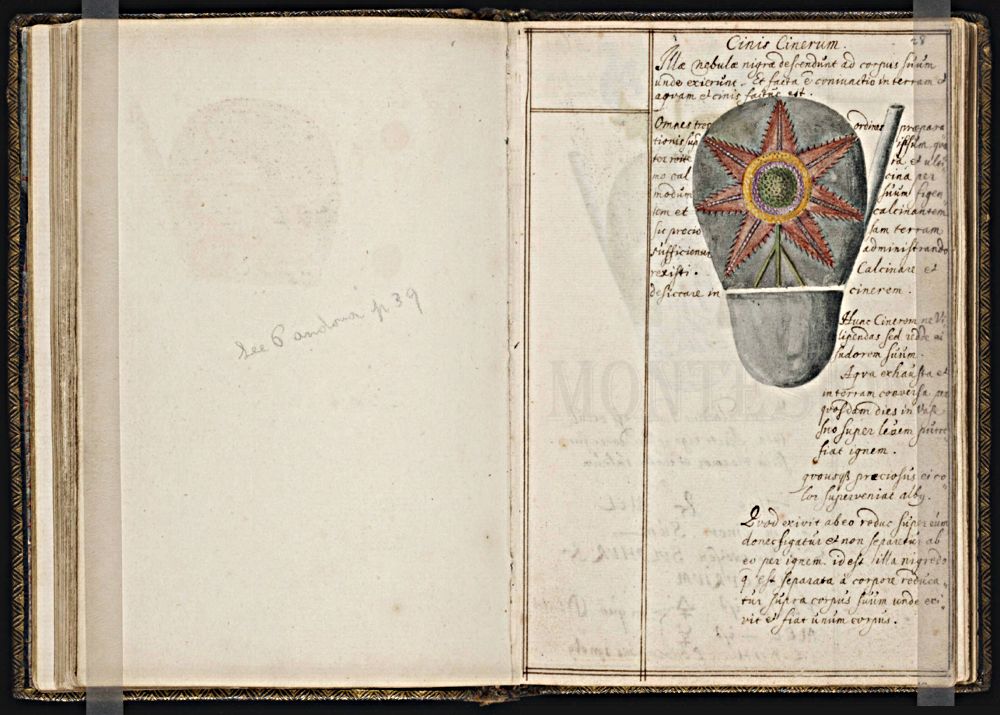 See Pandora p 39
28
Cinis Cinerum.
Illæ Nebulæ nigræ descendunt ad corpus suum
unde exierunt. Et facta è coniunctio in terram et
aqvam et cinis factus est.
Omnes ordines prepara
tionis sup ipsum
ra et
no cal cina per
modum suum figen
tem et calcinantem
sic precio sam terram
sufficienter administrando
rexisti. Calcinare et
desiccare in cinerem.
Hunc Cinerem ne Vi
lipendas sed redde ei
sudorem suum.
Aqva exhausta et
in terram conversa per
qvosdam dies in Vase
suo super levem
fiat ignem.
qvousqß preciosus ei co
lor superveniat alby.
Qvod exivit ab eo reduc super eum
donec figatur et non separetur ab
eo per ignem. id est illa nigredo
q̄ est separata à corpore reduca
tur supra corpus suum unde exi
vit et fiat unum corpus.